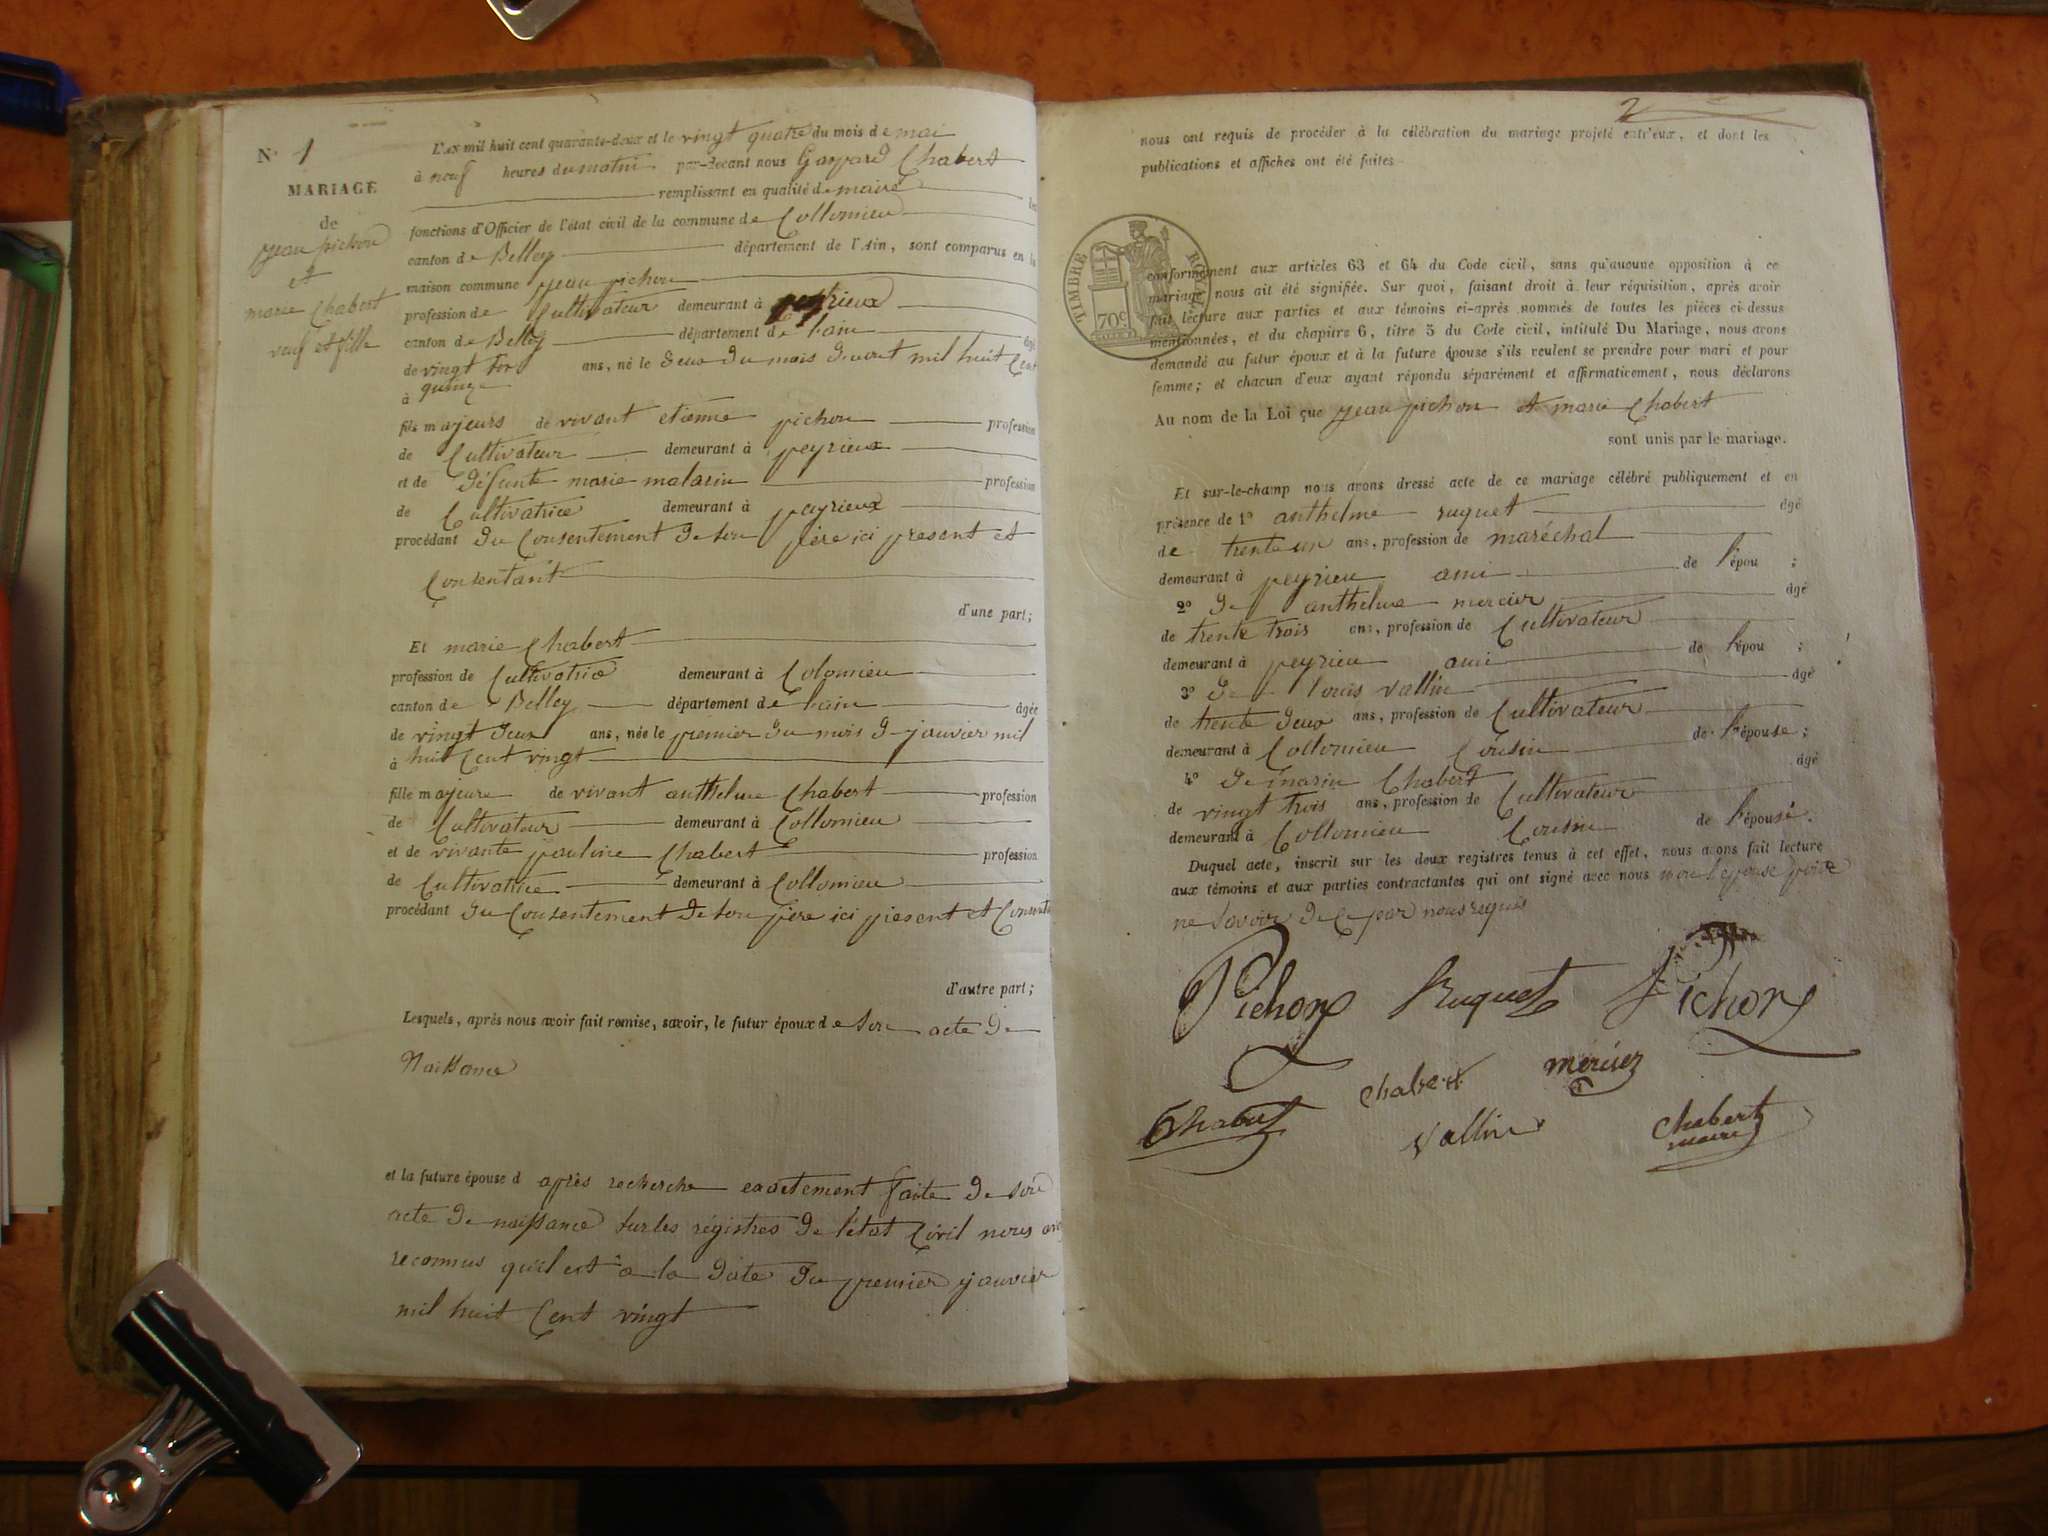 N° 1
MARIAGE
de
jean pichon
et
marie Chabert
veuf et fille
L'AN mil huit cent quarante-deux et le vingt quatre du mois de mai
à neuf heures du matin par-devant nous Gaspard Chabert
remplissant en qualité de maire les
fonctions d'Officier de l'état civil de la commune de Collomieu
canton de Belley département de l'Ain, sont comparus en la
maison commune jean pichon
profession de Cultivateur demeurant à peyrieux
canton de Belley département de lain âgé
de vingt ans, né le deux du mois mil huit Cent
à quinze
fils majeurs de vivant etienne pichon profession
de Cultivateur demeurant à peyrieux
et de défunte marie malarin profession
de Cultivatrice demeurant à peyrieux
procédant du Consentement de son père ici présent et
Consentant
d'une part;
Et marie Chabert
profession de Cultivatrice demeurant à Colomieu
canton de Belley département de lain âgée
de vingt deux ans, née le premier du mois de janvier mil
à huit Cent vingt
fille majeure de vivant anthelme Chabert profession
de Cultivateur demeurant à Collomieu
et de vivante pauline Chabert profession
de Cultivatrice demeurant à Collomieu
procédant du Consentement de son père ici présent et
d'autre part;
Lesquels, après nous avoir fait remise, savoir, le futur époux de son acte de
Naissance
et la future épouse d après recherche exactement faite de son
acte de naissance sur les régistres de l'état Civil nous
reconnus qu'il est à la date du premier janvier
mil huit Cent vingt
2
nous ont requis de procéder à la célébration du mariage projeté entr'eux, et dont les
publications et affiches ont été faites
TIMBRE ROYAL
70c
conformément aux articles 63 et 64 du Code civil, sans qu'aucune opposition à ce
mariage nous ait été signifiée. Sur quoi, faisant droit à leur réquisition, après avoir
fait lecture aux parties et aux témoins ci-après nommés de toutes les pièces ci-dessus
mentionnées, et du chapitre 6, titre 5 du Code civil, intitulé Du Mariage, nous avons
demandé au futur époux et à la future épouse s'ils veulent se prendre pour mari et pour
femme; et chacun d'eux ayant répondu séparément et affirmativement, nous déclarons
Au nom de la Loi que jean pichon et marie Chabert
sont unis par le mariage.
Et sur-le-champ nous avons dressé acte de ce mariage célébré publiquement et en
présence de 1° anthelme ruquet âgé
de trente un ans, profession de maréchal
demeurant à peyrieu ami de l'épou ;
2° de anthelme mercier âgé
de trente trois ans, profession de Cultivateur
demeurant à peyrieu ami de l'épou ;
3° de louis vallin âgé
de trente deux ans, profession de Cultivateur
demeurant à Collomieu Cousin de l'épouse;
4° de marin Chabert âgé
de vingt trois ans, profession de Cultivateur
demeurant à Collomieu Cousin de l'épouse.
Duquel acte, inscrit sur les deux registres tenus à cet effet, nous avons fait lecture
aux témoins et aux parties contractantes qui ont signé avec nous non l'epouse pour
ne savoir de ce par nous requis
Pichon Ruquet Pichon
Chabert mercier
Chabert vallin Chabert
maire